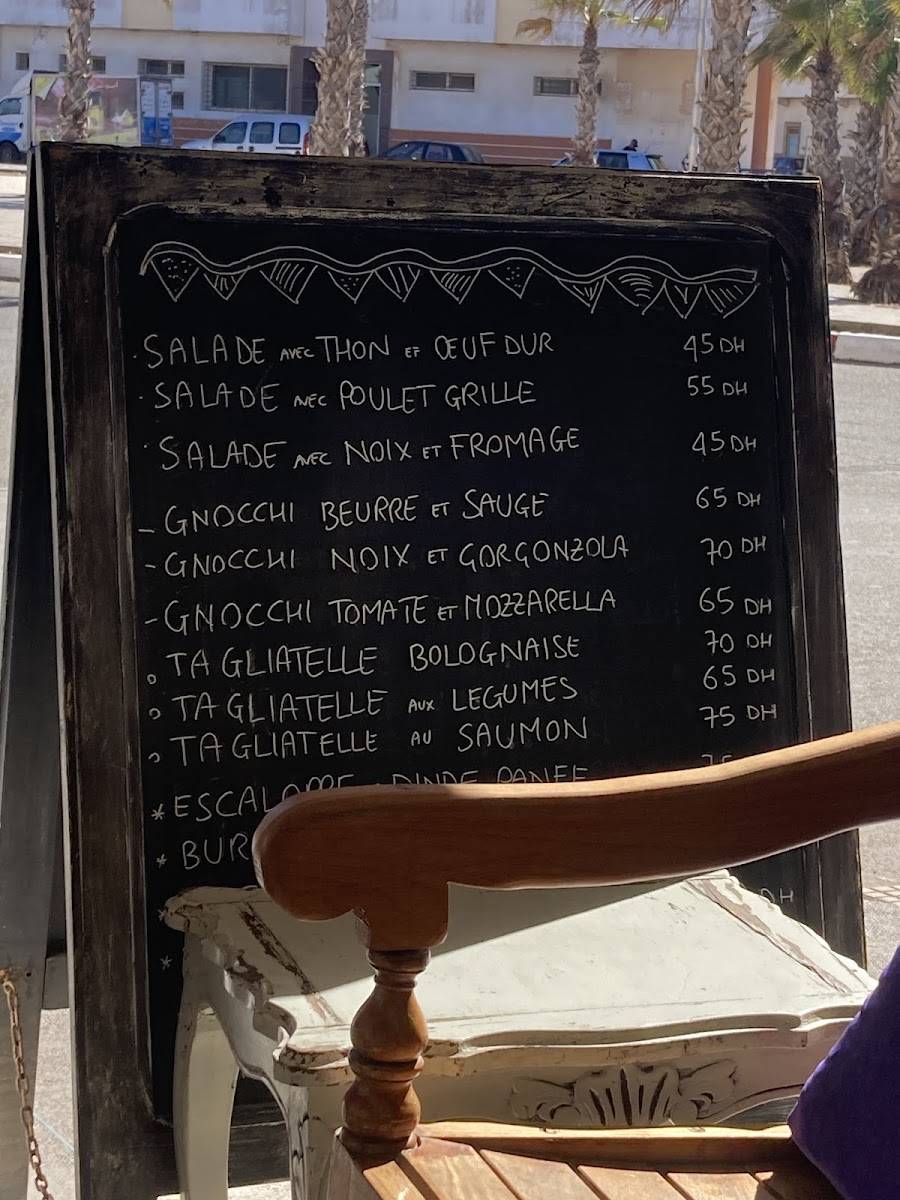 · SALADE AVEC THON ET ŒUF DUR 45 DH
· SALADE AVEC POULET GRILLE 55 DH
· SALADE AVEC NOIX ET FROMAGE 45 DH
- GNOCCHI BEURRE ET SAUGE 65 DH
- GNOCCHI NOIX ET GORGONZOLA 70 DH
- GNOCCHI TOMATE ET MOZZARELLA 65 DH
° TAGLIATELLE BOLOGNAISE 70 DH
° TAGLIATELLE AUX LEGUMES 65 DH
° TAGLIATELLE AU SAUMON 75 DH
* ESCALOPPE DINDE PANEE
* BUR
* DH
*